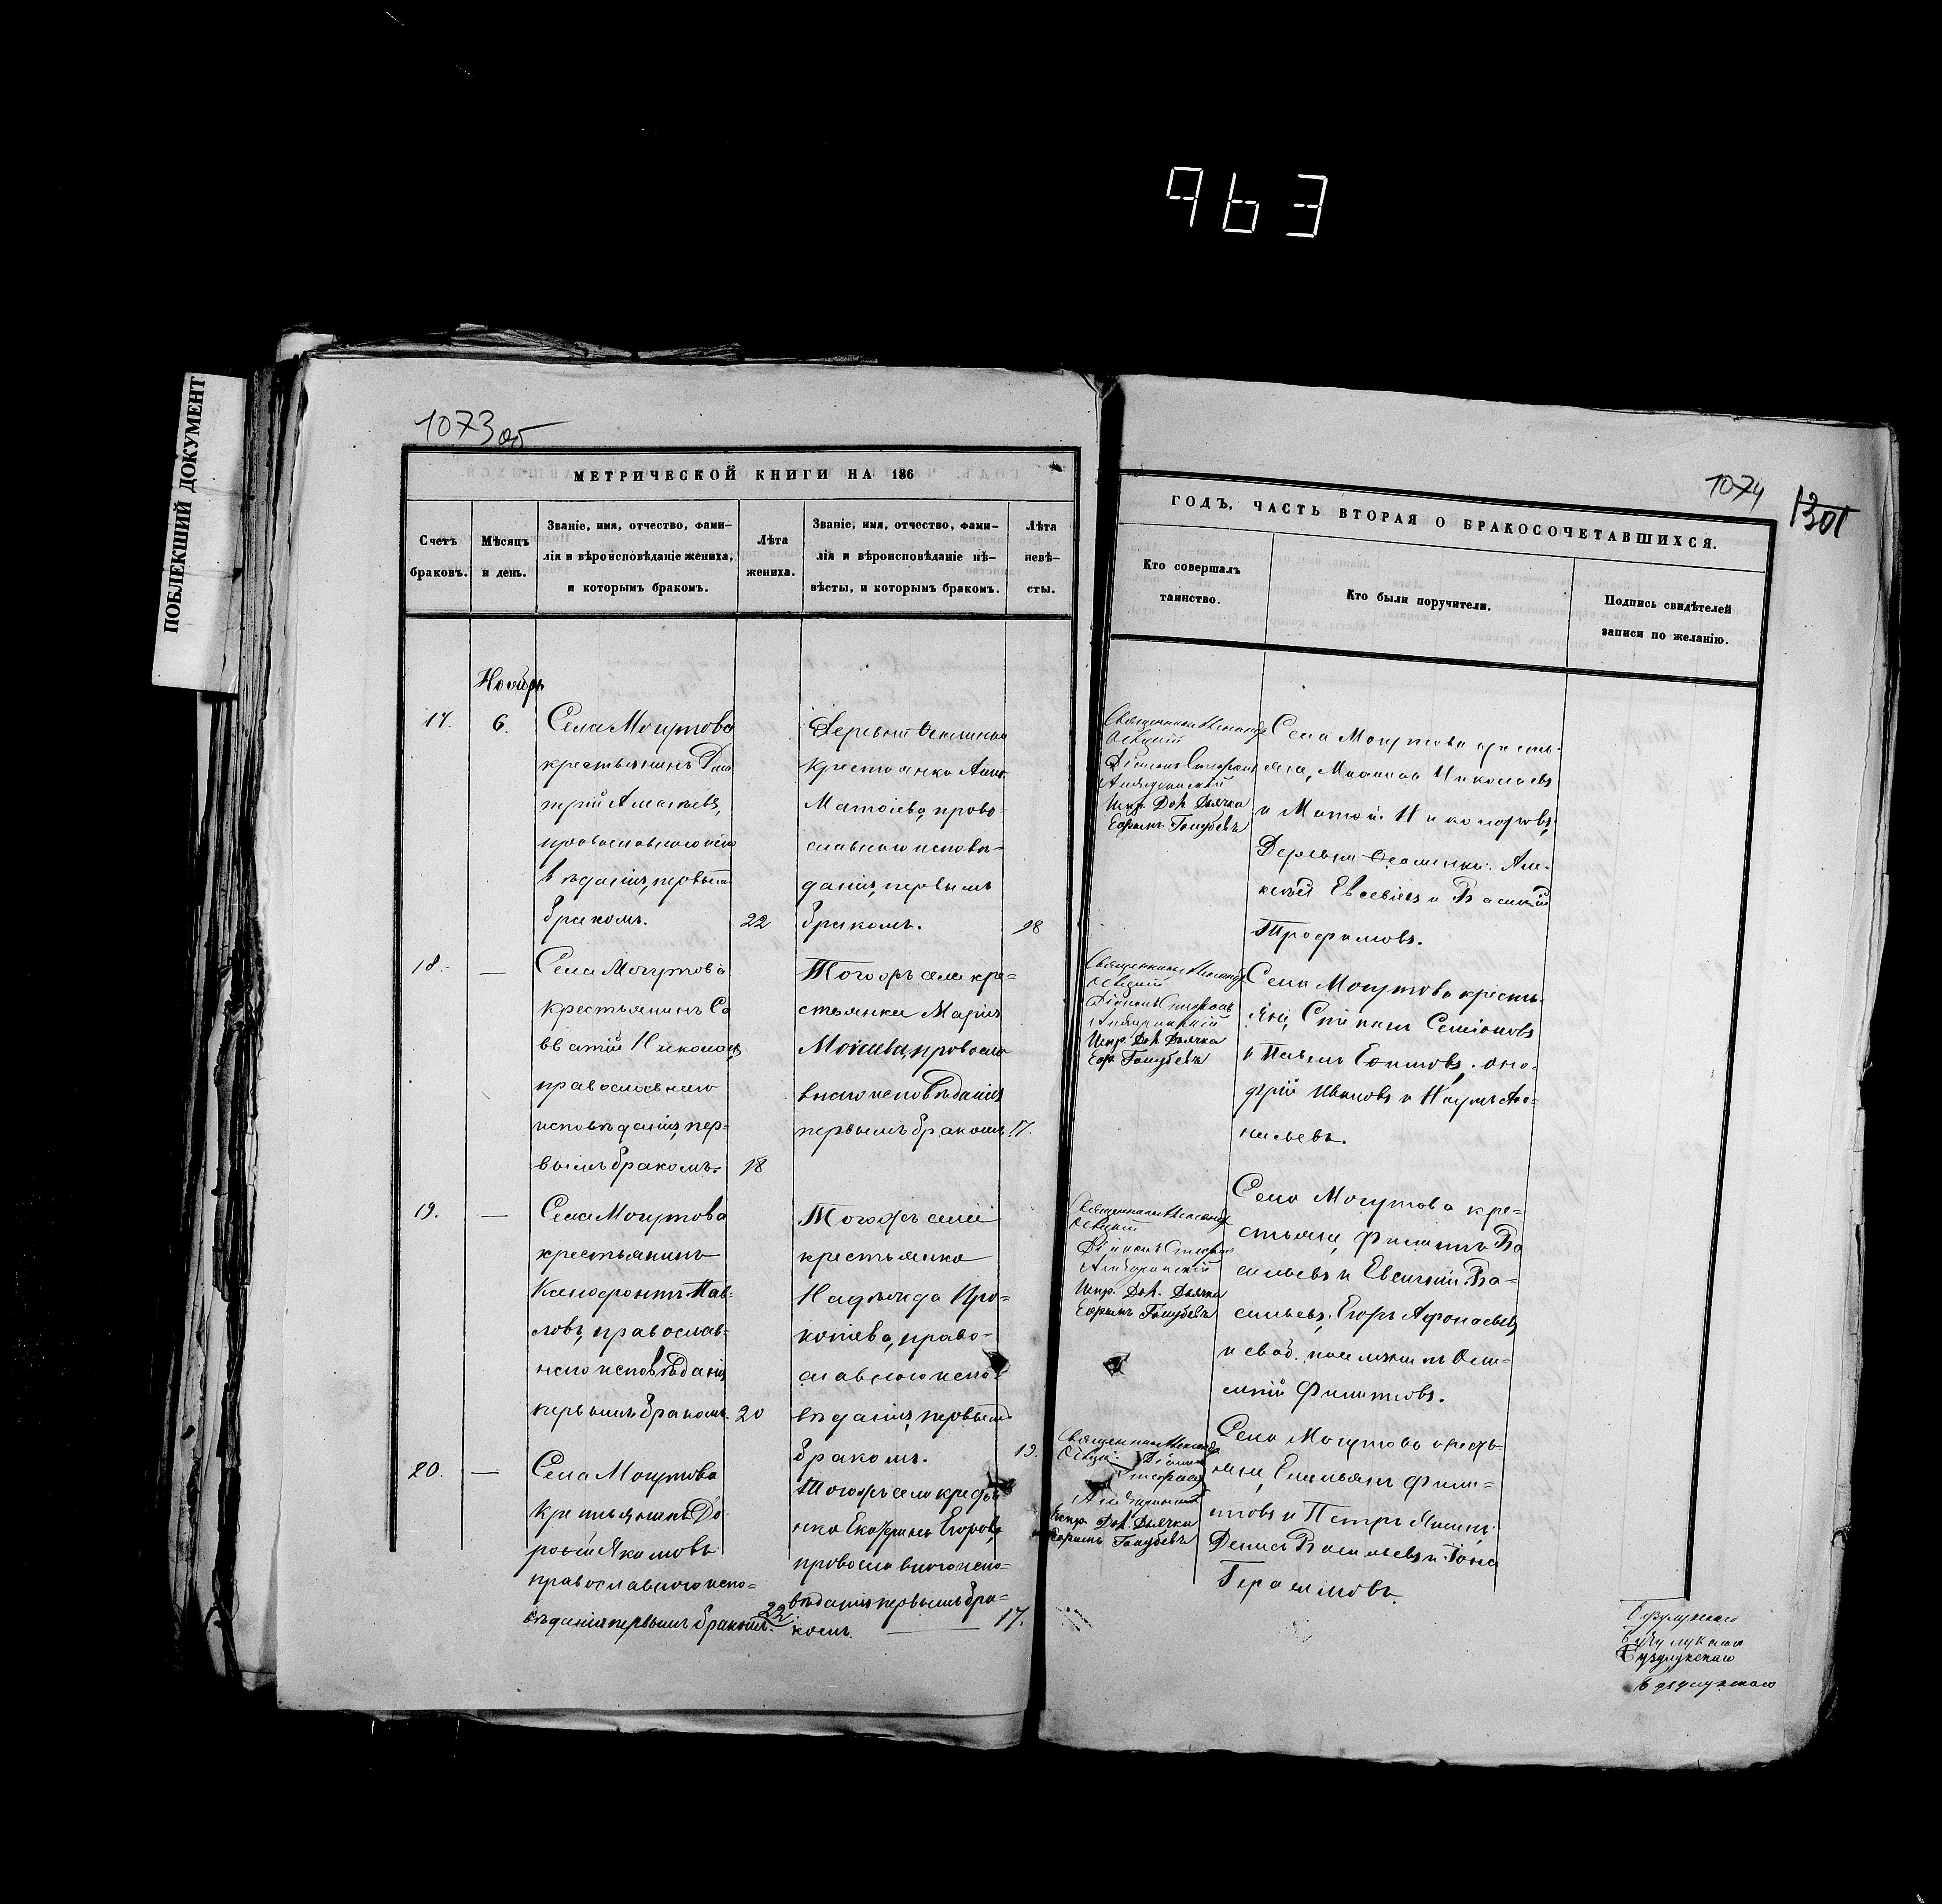 963
ПОБЛЕКШИЙ ДОКУМЕНТ
1073об
МЕТРИЧЕСКОЙ КНИГИ НА 186
Счетъ браковъ.
Мѣсяцъ и день.
Званіе, имя, отчество, фами-
лія и вѣроисповѣданіе жениха,
и которымъ бракомъ.
Лѣта жениха.
Званіе, имя, отчество, фами-
лія и вѣроисповѣданіе нѣ-
вѣсты, и которымъ бракомъ.
Лѣта
невѣ-
сты.
Ноябрь
17.
6.
Села Могутова
крестьянинъ
православнаго испо
вѣданія, первымъ
бракомъ.
22
Деревни
крестьянка Анна
православнаго исповѣ-
данія, первымъ
бракомъ.
18
18.
—
Села Могутова
крестьянинъ Са
ватій Николаевъ
православнаго
исповѣданія, пер-
вымъ бракомъ.
18
Тогожъ села кре-
стьянка Марія
православ
наго исповѣданія
первымъ бракомъ.
17.
19.
—
Села Могутова
крестьянинъ
Ксенофонтъ Пав-
ловъ, православ-
наго исповѣданія
первымъ бракомъ.
20
Тогожъ села
крестьянка
Надежда Про-
копьева, право-
славнаго испо-
вѣданія, первымъ
бракомъ.
19.
20.
—
Села Могутова
крестьянинъ До
рофей Якимовъ
православнаго испо-
вѣданія первымъ бракомъ.
22
Тогожъ села кресть
янка Екатерина Егорова
православнаго испо-
вѣданія первымъ бра-
комъ.
17.
1074
1301
ГОДЪ, ЧАСТЬ ВТОРАЯ О БРАКОСОЧЕТАВШИХСЯ.
Кто совершалъ
таинство.
Кто были поручители.
Подпись свидѣтелей
записи по желанію.
Священникъ Александръ
Діаконъ
Испр. Дол. Дьячка
Ефимъ Голубевъ
Села Могутова кресть-
яне, Николаевъ
и Никифоровъ,
Деревни Але-
ксѣй Евсевіевъ и Василій
Трофимовъ.
Священникъ Александръ
Діаконъ
Испр. Дол. Дьячка
Еф. Голубевъ
Села Могутова кресть-
яне, Степанъ Семіоновъ
и Павелъ Ефимовъ, Оно-
фрій Ивановъ и Наумъ Ана-
ньевъ.
Священникъ Александръ
Діаконъ
Испр. Дол. Дьячка
Ефимъ Голубевъ
Села Могутова кре-
стьяне, Филиппъ Ва
сильевъ и Евсигній Ва-
сильевъ, Егоръ Афонасьевъ
и
Филиповъ.
Священникъ Александръ
Діаконъ
Испр. Дол. Дьячка
Ефимъ Голубевъ
Села Могутова кресть-
яне, Емельянъ Фили-
повъ и Петръ
Денисъ Васильевъ и Іона
Герасимовъ.
Бузулукскаго
Бузулукскаго
Бузулукскаго
Бузулукскаго